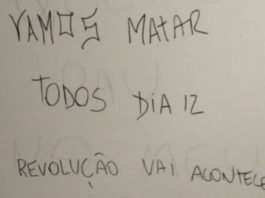 VAMOS MATAR
TODOS DIA 12
REVOLUÇÃO VAI ACONTECE